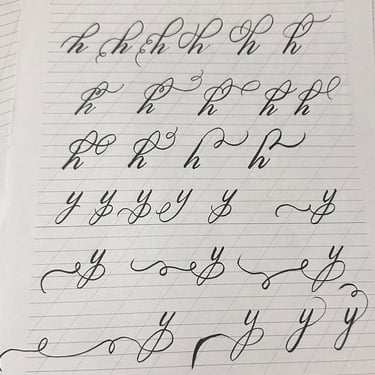 h h h h h h
h h h h h
h h h h
y y y y y y
y y y
y y y y